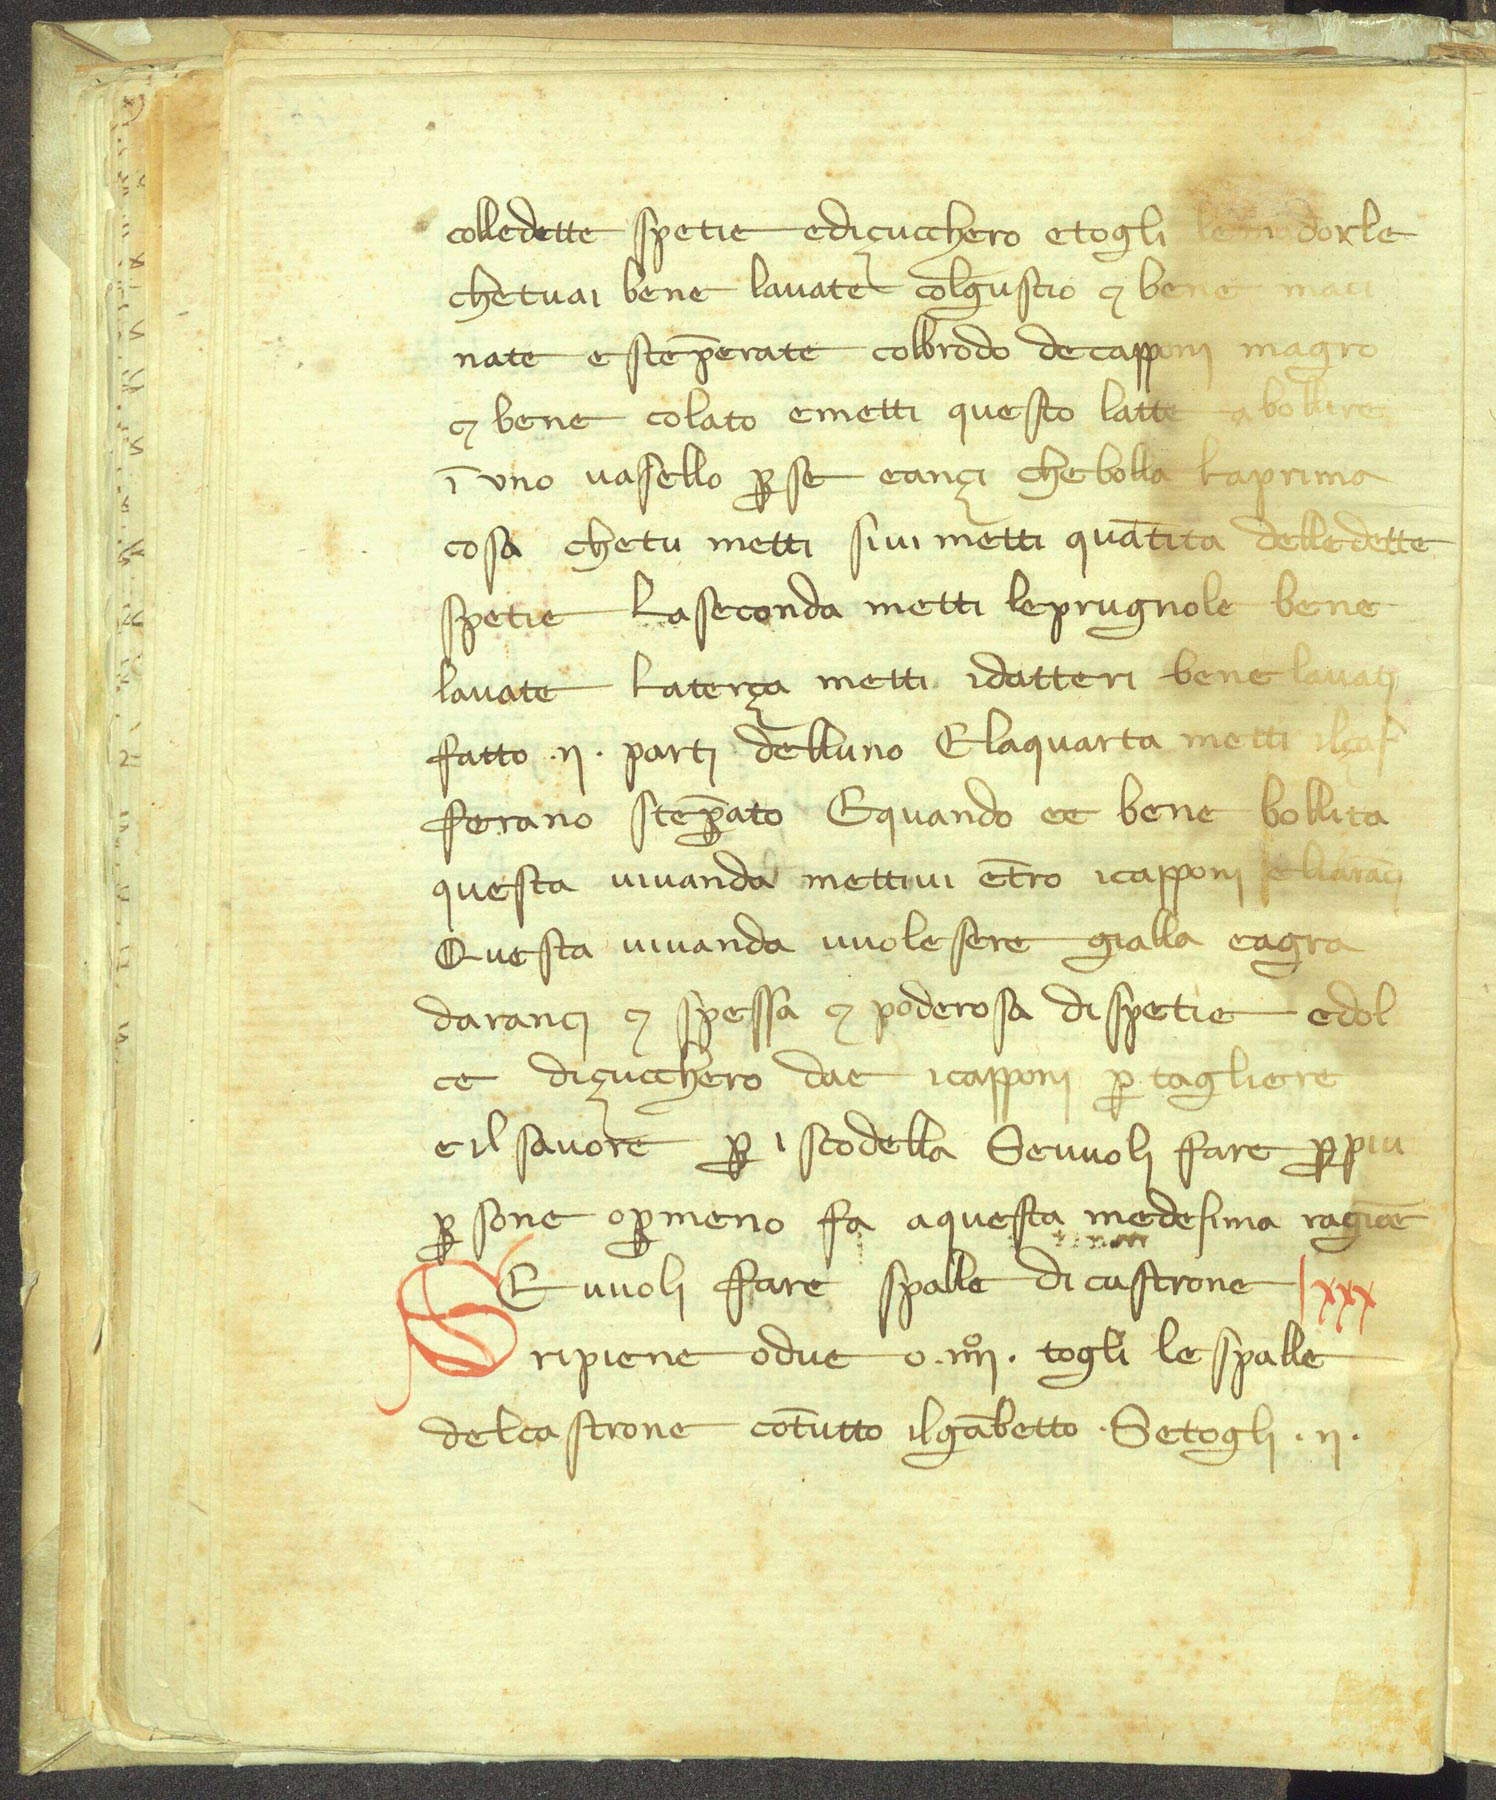 colledette spetie ediçucchero etogli lemandorle
chetuai bene lauate colguscio ⁊ bene maci
nate e step̄erate colbrodo decapponi magro
⁊ bene colato emetti questo latte abollire
ī uno uasello ꝑse eançi chebolla Laprima
cosa chetu metti siui metti quātita delledette
spetie Laseconda metti leprugnole bene
lauate Laterça metti idatteri bene lauati
fatto .ij. parti delluno Elaquarta metti ilçaf
ferano steꝑato Equando ee bene bollita
questa uiuanda mettiui ētro icapponi eliaranci
Questa uiuanda uuolesere gialla eagra
daranci ⁊ spessa ⁊ poderosa dispetie edol
ce diçucchero dae icapponi ꝑ tagliere
eil sauore ꝑ iscodella Seuuoli fare ꝑpiu
ꝑsone oꝑmeno fa aquesta medesima ragiōe
SE uuoli fare spalle dicastrone lxxx
ripiene odue o .iiij. togli lespalle
delcastrone cōtutto ilgābetto . Setogli . ij .